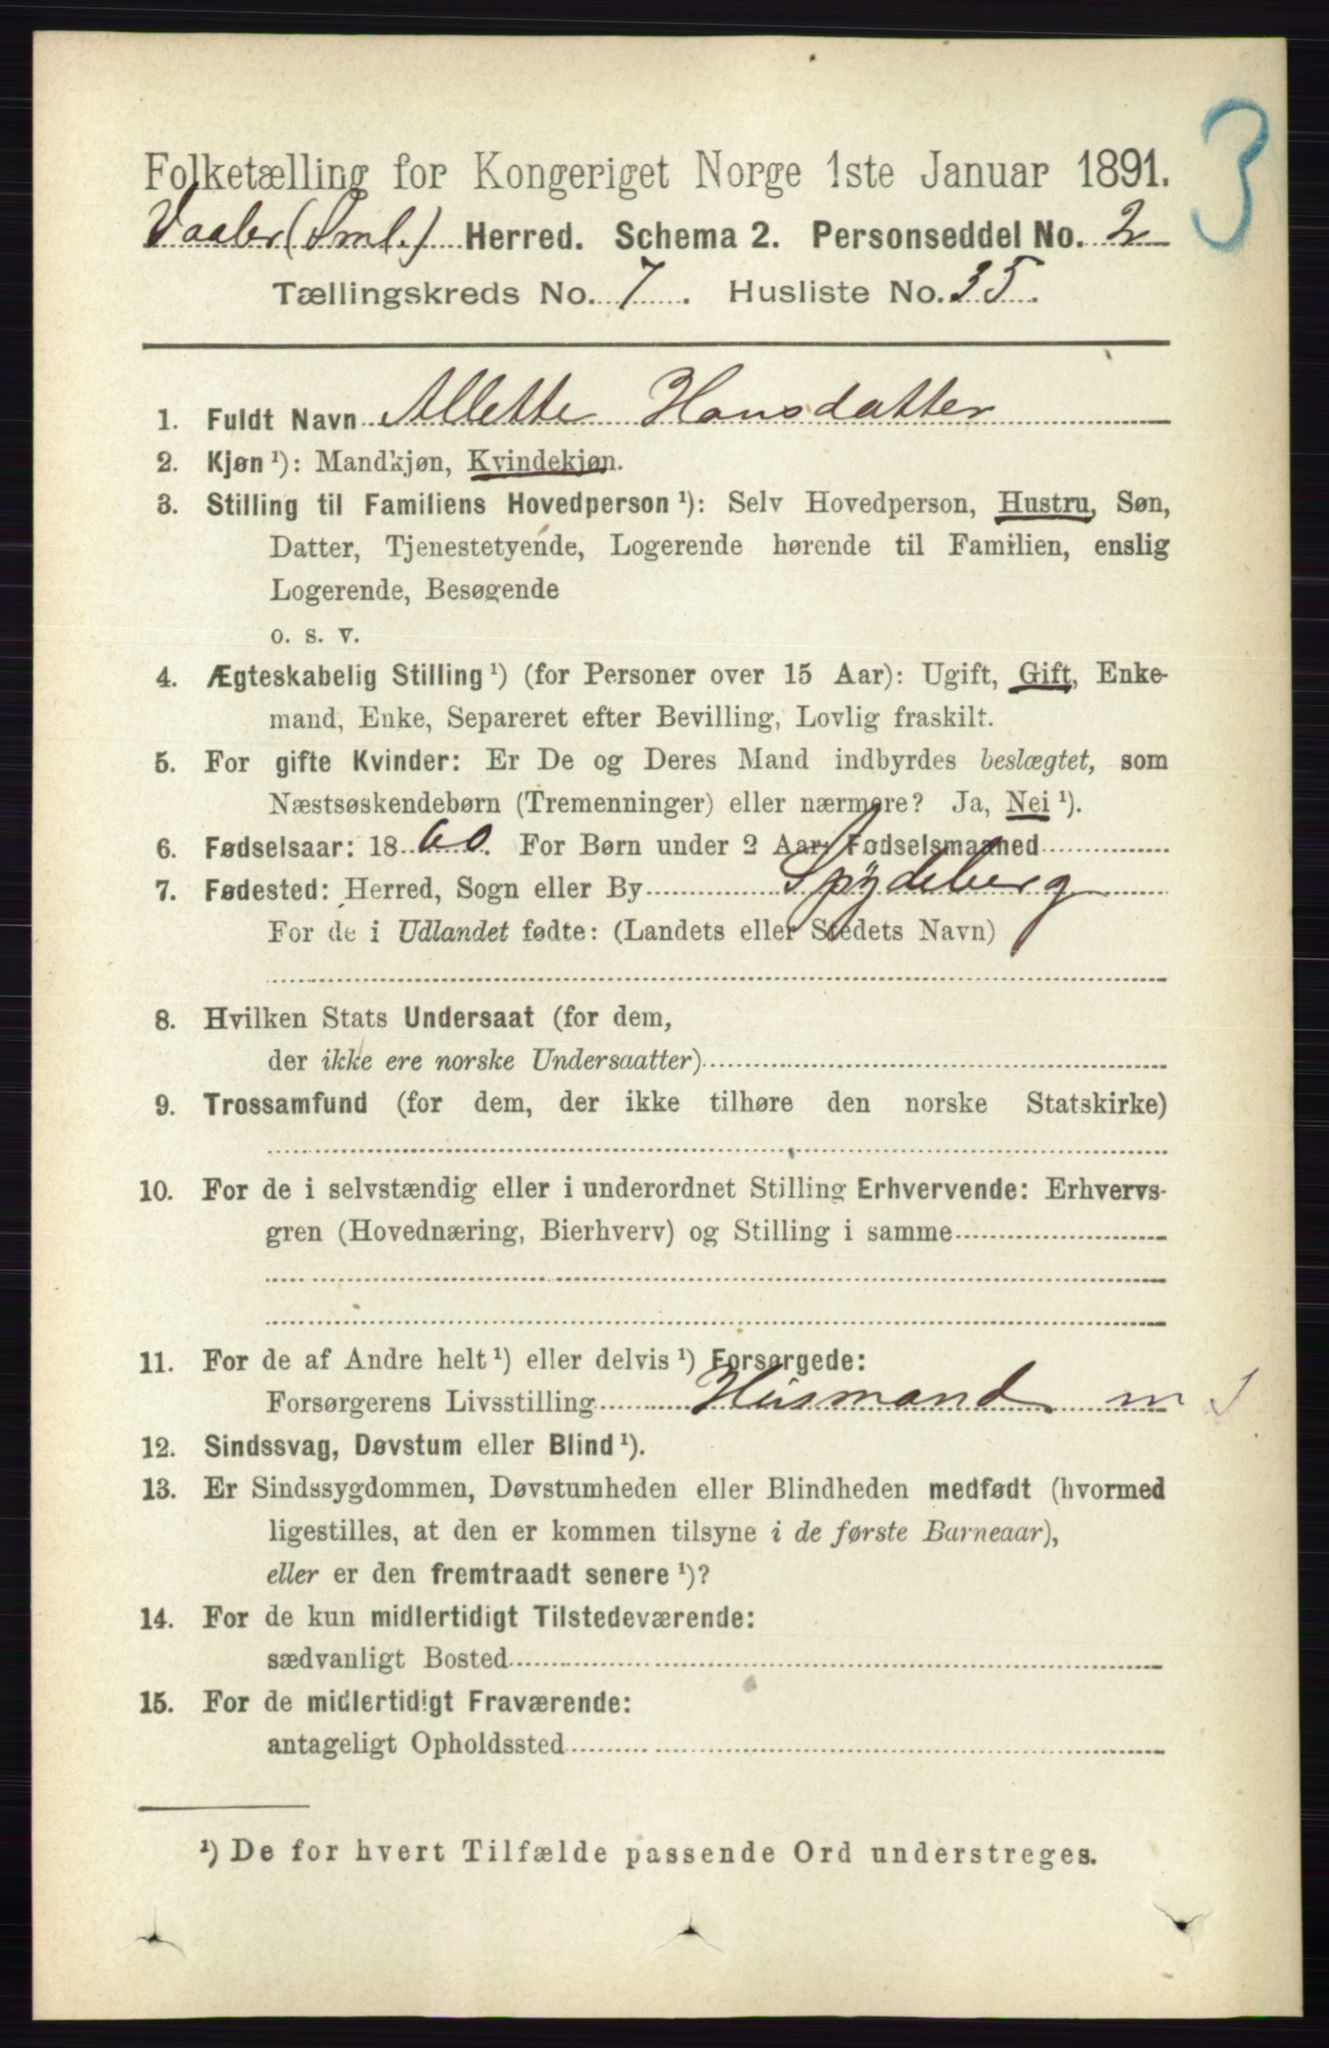 3
Folketælling for Kongeriget Norge 1ste Januar 1891.
Vaaler (Sml.) Herred. Schema 2. Personseddel No. 2
Tællingskreds No. 7. Husliste No. 35.
1. Fuldt Navn Allette Hansdatter
2. Kjøn ¹): Mandkjøn, Kvindekjøn.
3. Stilling til Familiens Hovedperson ¹): Selv Hovedperson, Hustru, Søn,
Datter, Tjenestetyende, Logerende hørende til Familien, enslig
Logerende, Besøgende
o. s. v.
4. Ægteskabelig Stilling ¹) (for Personer over 15 Aar): Ugift, Gift, Enke-
mand, Enke, Separeret efter Bevilling, Lovlig fraskilt.
5. For gifte Kvinder: Er De og Deres Mand indbyrdes beslægtet, som
Næstsøskendebørn (Tremenninger) eller nærmere? Ja, Nei ¹).
6. Fødselsaar: 1860. For Børn under 2 Aar: Fødselsmaaned
7. Fødested: Herred, Sogn eller By Spydeberg
For de i Udlandet fødte: (Landets eller Stedets Navn)
8. Hvilken Stats Undersaat (for dem,
der ikke ere norske Undersaatter)
9. Trossamfund (for dem, der ikke tilhøre den norske Statskirke)
10. For de i selvstændig eller i underordnet Stilling Erhvervende: Erhvervs-
gren (Hovednæring, Bierhverv) og Stilling i samme
11. For de af Andre helt ¹) eller delvis ¹) Forsørgede:
Forsørgerens Livsstilling Husmand m J
12. Sindssvag, Døvstum eller Blind ¹).
13. Er Sindssygdommen, Døvstumheden eller Blindheden medfødt (hvormed
ligestilles, at den er kommen tilsyne i de første Barneaar),
eller er den fremtraadt senere ¹)?
14. For de kun midlertidigt Tilstedeværende:
sædvanligt Bosted
15. For de midlertidigt Fraværende:
antageligt Opholdssted
¹) De for hvert Tilfælde passende Ord understreges.